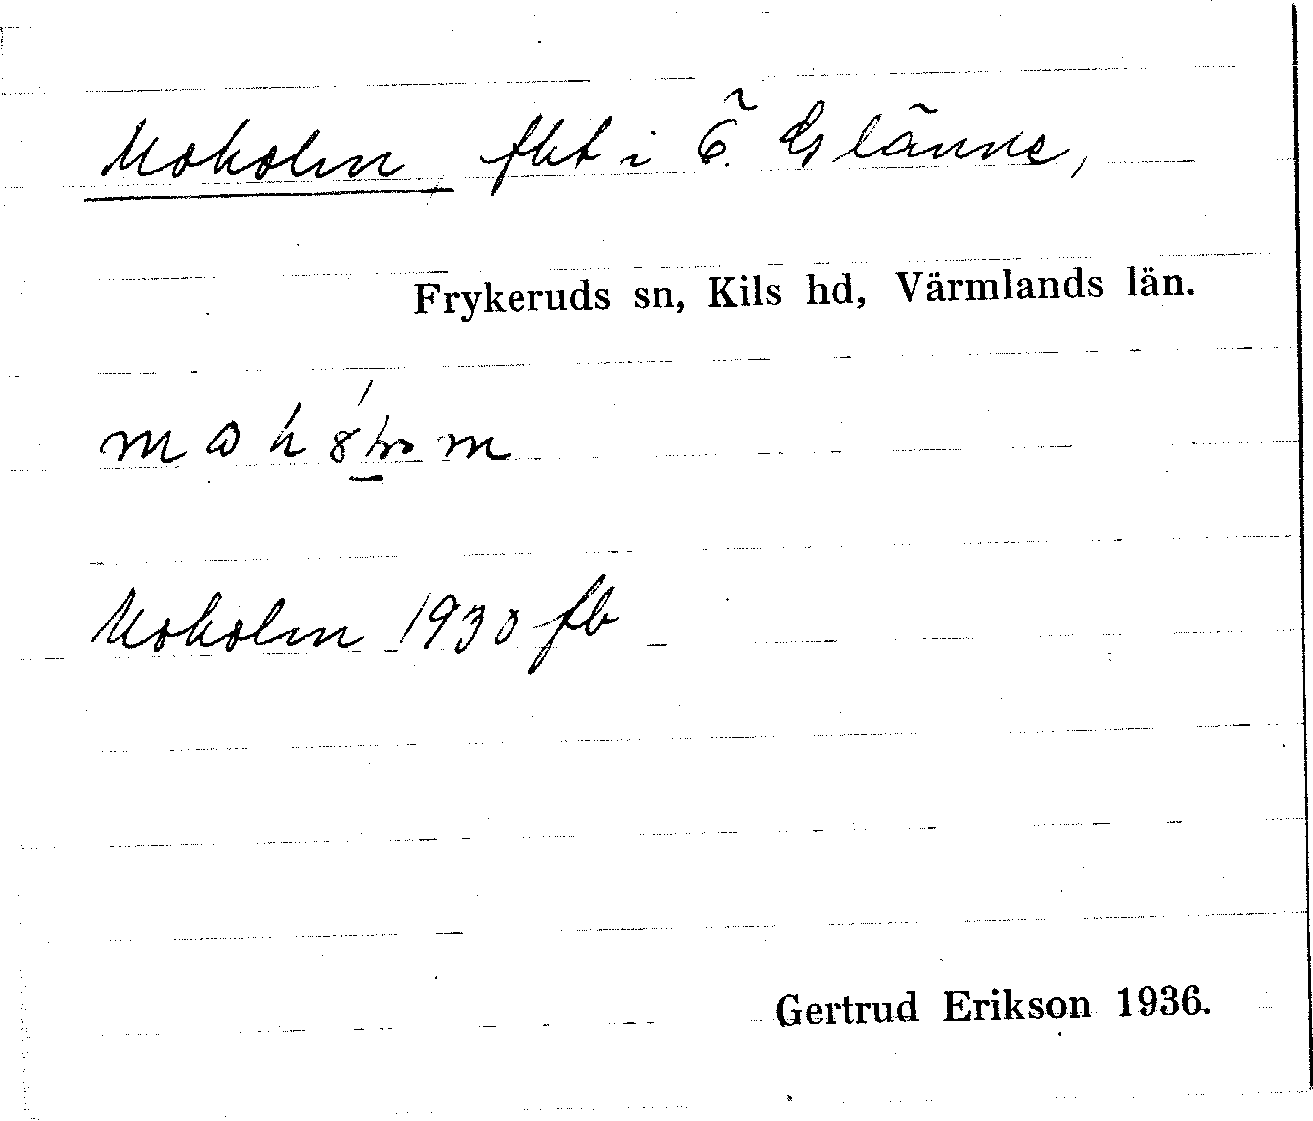 Moholm, fht i Ö. Glänne,
Frykeruds sn, Kils hd, Värmlands län.
Moholm 1930 fb
Gertrud Erikson 1936.